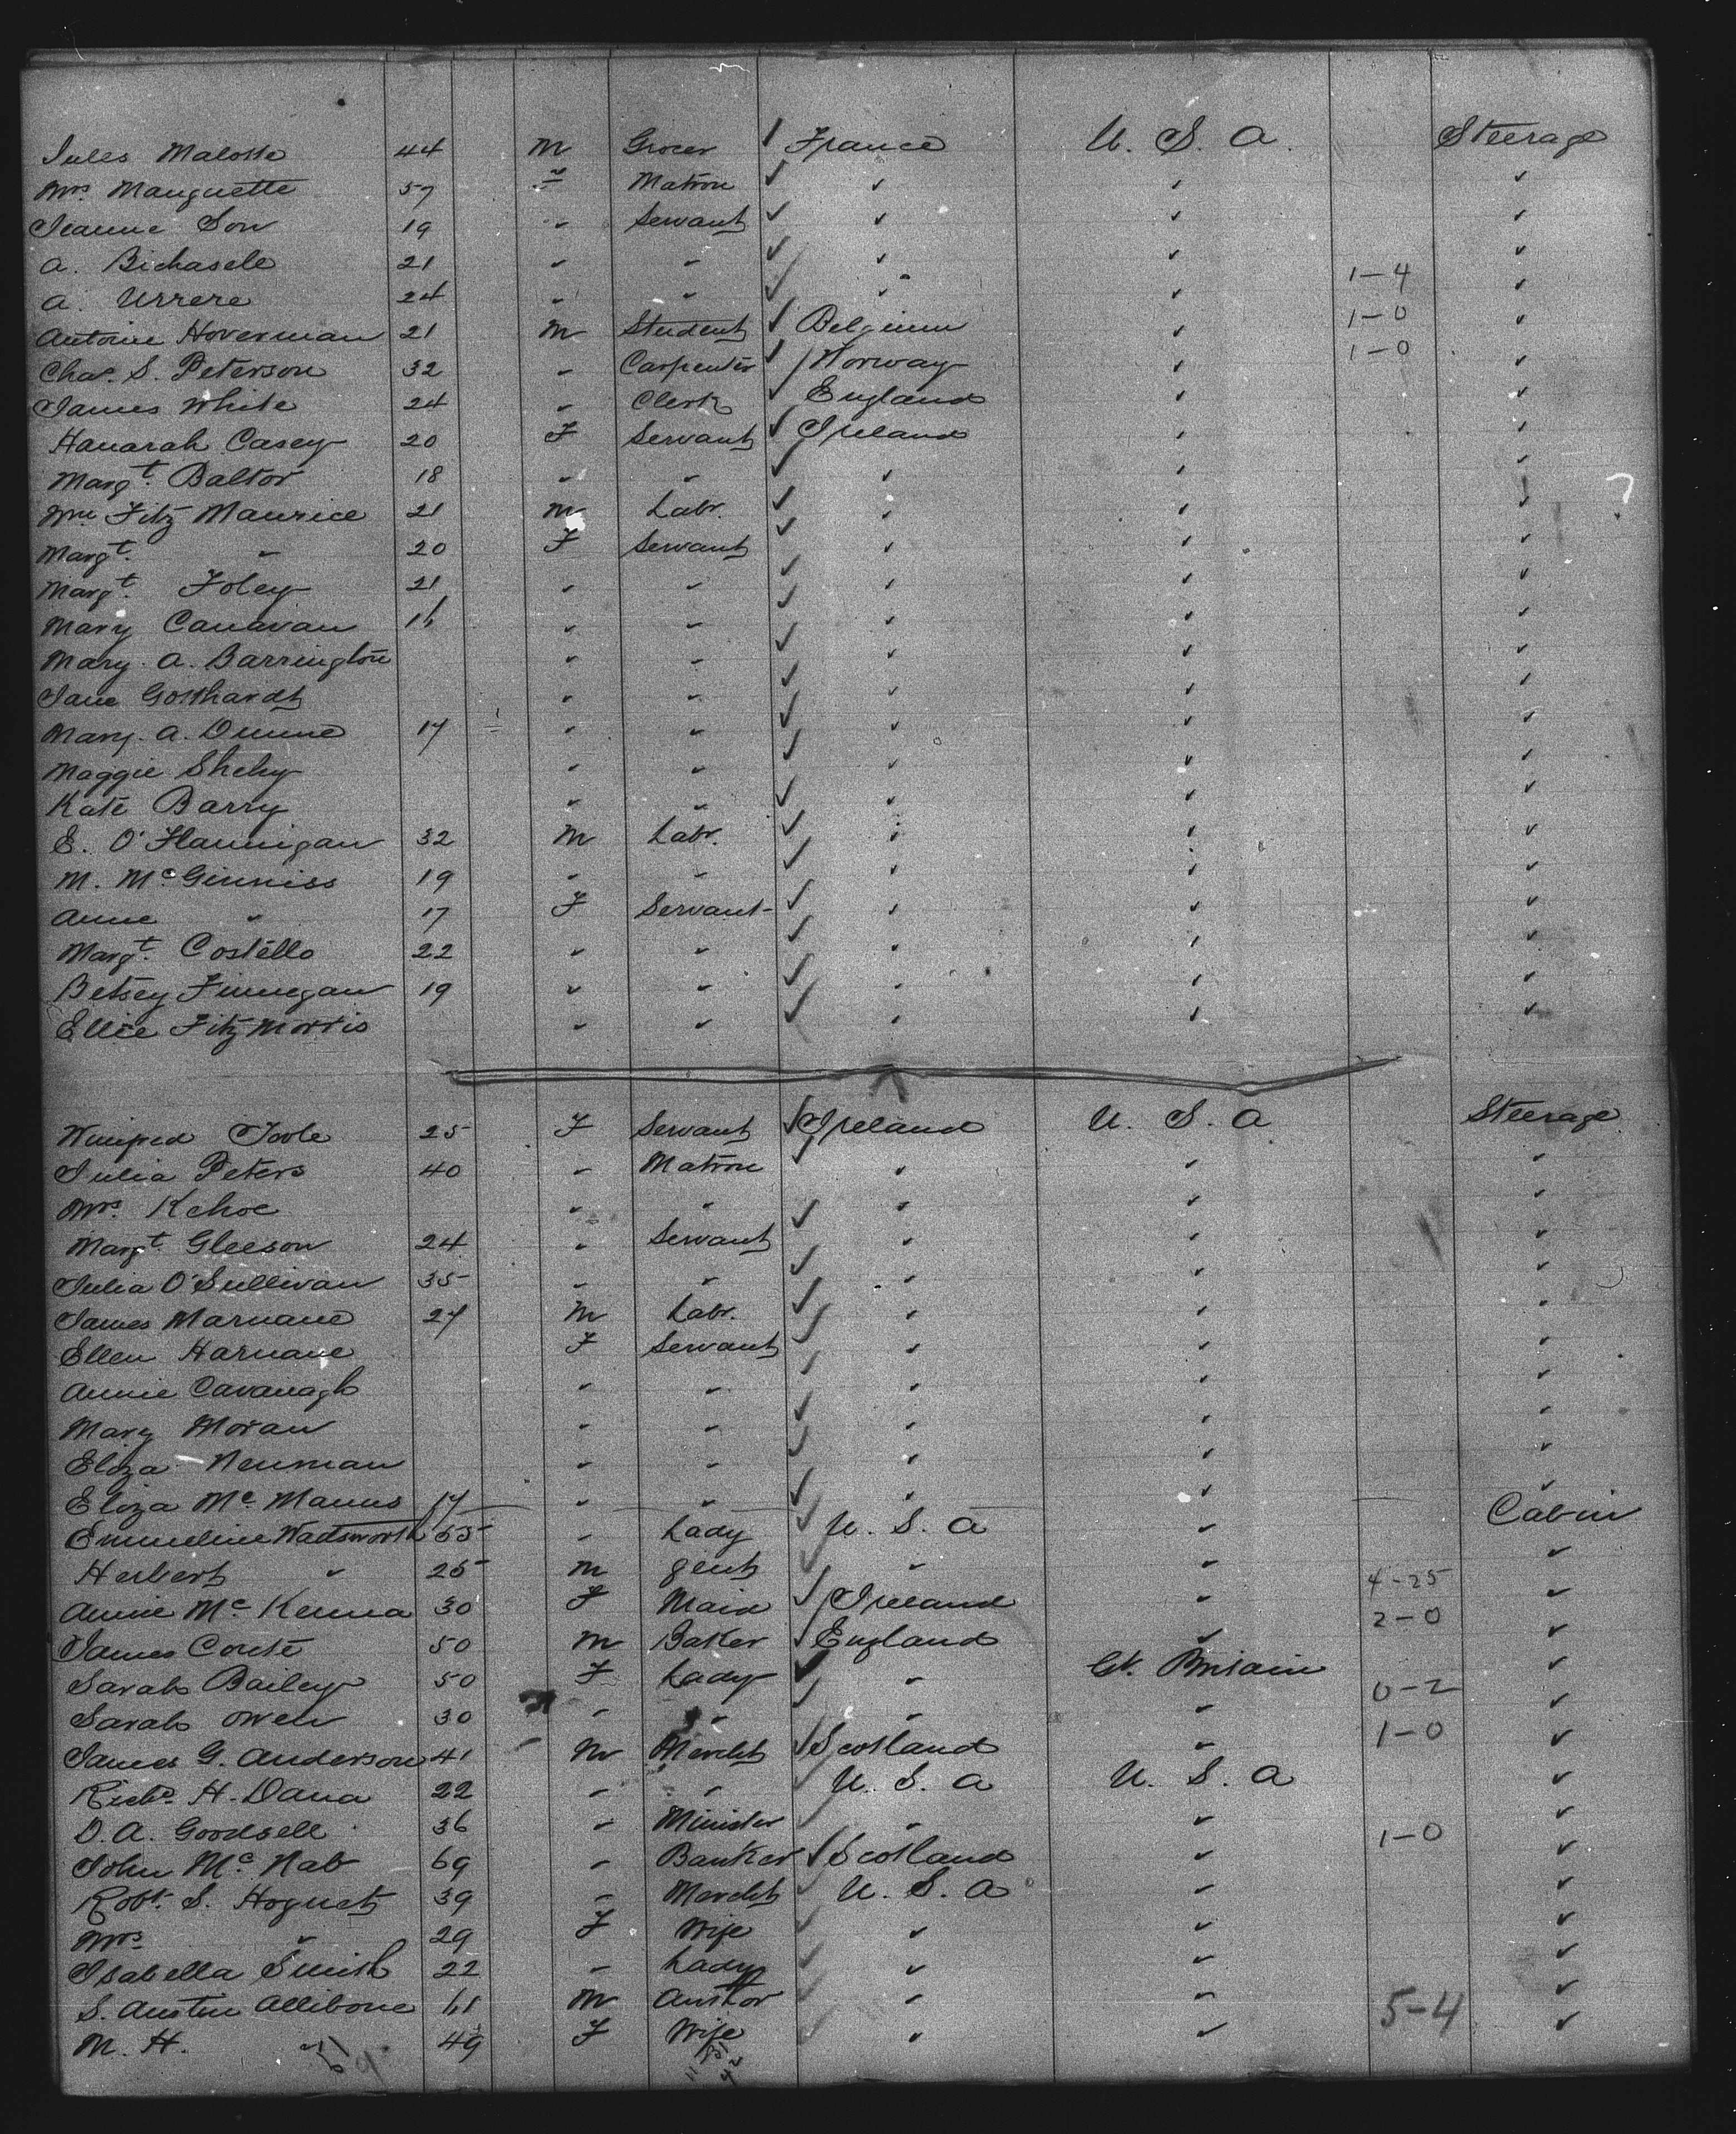 Jules Malosse 44 M Grocer ✓ France U. S. A. Steerage
Mrs. Manguette 57 " Matron ✓ " " "
Jeanne Son 19 " Servant ✓ " " "
A. Bichasele 21 " " ✓ " " "
A. Urrere 24 " " ✓ " " 1-4 "
Antoine Hoverman 21 M Student ✓ Belgium " 1-0 "
Chas. S. Peterson 32 " Carpenter ✓ Norway " 1-0 "
James White 24 " Clerk ✓ England " "
Hanarah Casey 20 F Servant ✓ Ireland " "
Margt. Baltor 18 " " ✓ " " "
Wm Fitz Maurice 21 M Labr. ✓ " " "
Margt. " 20 F Servant ✓ " " "
Margt. Foley 21 " " ✓ " " "
Mary Canavan 16 " " ✓ " " "
Mary. A. Barrington " " ✓ " " "
Jane Gotthardt " " ✓ " " "
Mary. A. Dunne 17 " " ✓ " " "
Maggie Shehy " " ✓ " " "
Kate Barry " " ✓ " " "
E. O'Flannigan 32 M Labr. ✓ " " "
M. McGinniss 19 " " ✓ " " "
Anne " 17 F Servant ✓ " " "
Margt. Costello 22 " " ✓ " " "
Betsey Finnegan 19 " " ✓ " " "
Ellie Fitz Morris " " ✓ " " "
Winifred Toole 25 F Servant ✓ Ireland U. S. A Steerage
Julia Peters 40 " Matron ✓ " " "
Mrs. Kehoe " " ✓ " " "
Margt. Gleeson 24 " Servant ✓ " " "
Julia O'Sullivan 35 " " ✓ " " "
James Marnane 27 M Labr. ✓ " " "
Ellen Harnane F Servant ✓ " " "
Annie Cavanagh " " ✓ " " "
Mary Moran " " ✓ " " "
Eliza Newman " " ✓ " " "
Eliza McManus 17 " " ✓ " " "
Emmeline Wadsworth 55 " Lady ✓ U. S. A " Cabin
Herbert " 25 M Gent ✓ " " "
Annie McKenna 30 F Maid ✓ Ireland " 4-25 "
James Conte 50 M Baker ✓ England " 2-0 "
Sarah Bailey 50 F Lady ✓ " Gt. Britain "
Sarah Owen 30 " " ✓ " " 0-2 "
James G. Anderson 41 M Mercht ✓ Scotland " 1-0 "
Richd. H. Dana 22 " " ✓ U. S. A U. S. A "
D. A. Goodsell 36 " Minister ✓ " " "
John McNab 69 " Banker ✓ Scotland " 1-0 "
Robt. S. Hoguet 39 " Mercht ✓ U. S. A " "
Mrs. " 29 F Wife ✓ " " "
Isabella Smith 22 " Lady ✓ " " "
S. Austin Allibone 61 M Author ✓ " " "
M. H. " 49 F Wife ✓ " " 5-4 "